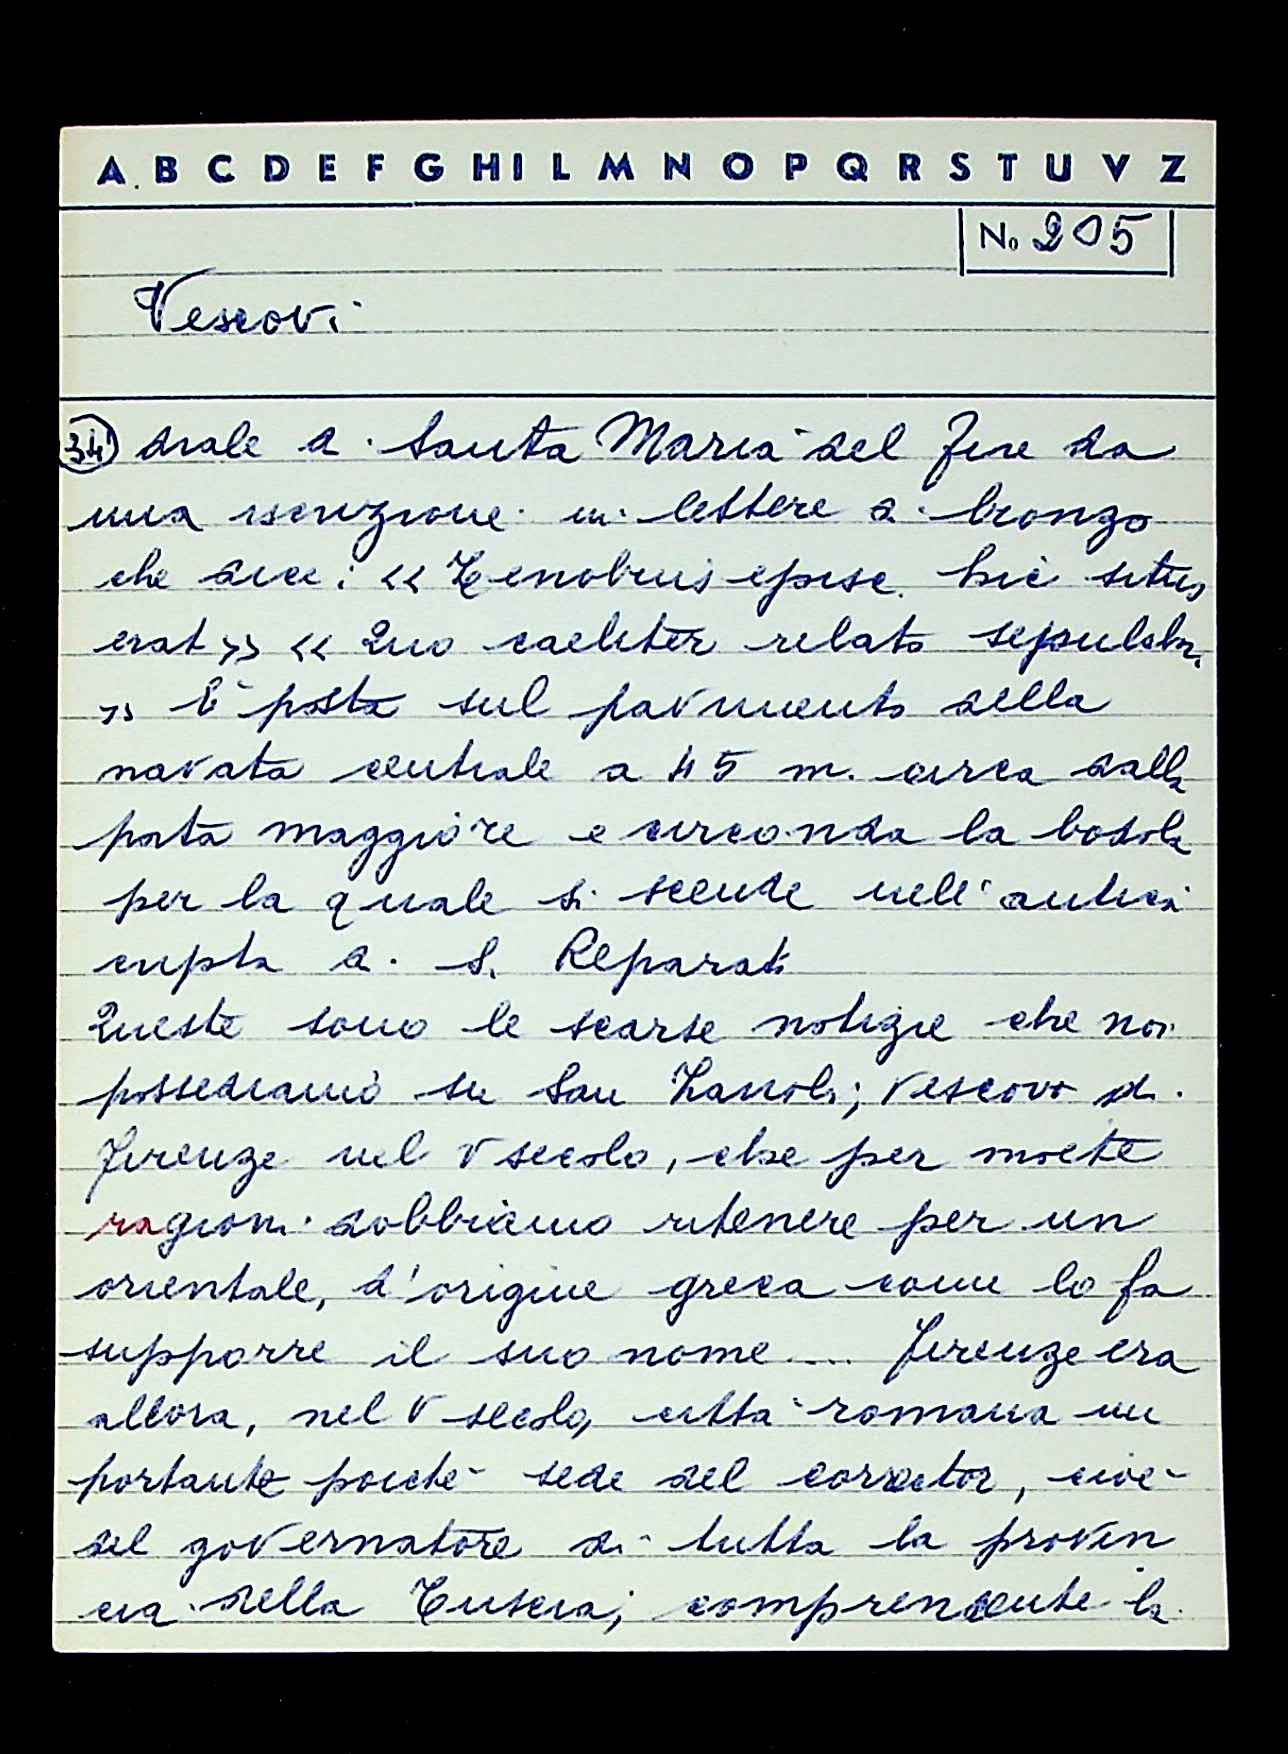 A B C D E F G H I L M N O P Q R S T U V Z
No 205
Vescovi
34) drale di Santa Maria del Fiore da
una iscrizione in lettere di bronzo
che dice: << Zenobius episc. hic situs
erat >> << Quo caeliter relato sepulchr.
>> È posta sul pavimento della
navata centrale a 45 m. circa dalla
porta maggiore e circonda la botola
per la quale si scende nell'antica
cripta di S. Reparata
Queste sono le scarse notizie che noi
possediamo su San Zanobi, vescovo di
Firenze nel V secolo, che per molte
ragioni dobbiamo ritenere per un
orientale, d'origine greca come lo fa
supporre il suo nome .... Firenze era
allora, nel V secolo, città romana im
portante poiché sede del corrector, cioè
del governatore di tutta la provin
cia della Tuscia, comprendente la